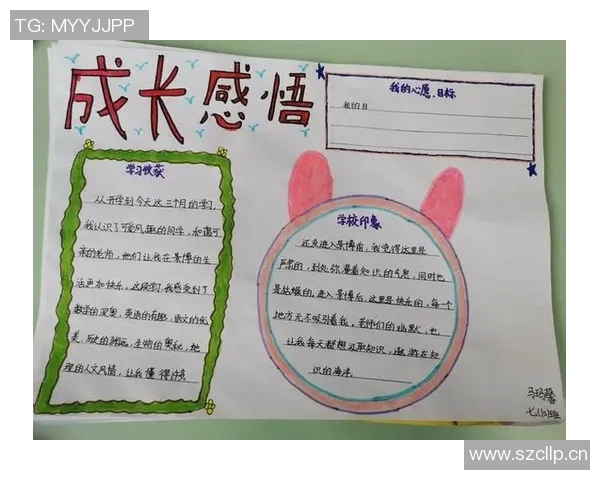 TG: MYYJJPP
成长感悟
我的心愿、目标
我的目
学习收获
从开学到今天这三个月的学习,
我认识了可爱风趣的同学,和蔼可
亲的老师,他们让我在景博的生
活更加快乐。这段学习,我感受到了
数学的深奥,英语的有趣,语文的优
美,历史的渊远,生物的奥秘,地
理的人文风情,让我懂得许多
学校印象
还未进入景博前,我觉得这里是
严肃的,到处弥漫着知识的气息,同时也
是枯燥的,进入景博后,这里是快乐的,每一个
地方无不吸引着我,老师们的幽默,也
让我每天都想汲取知识,遨游在知
识的海洋。
马玛馨
七(10)班
www.szcllp.cn